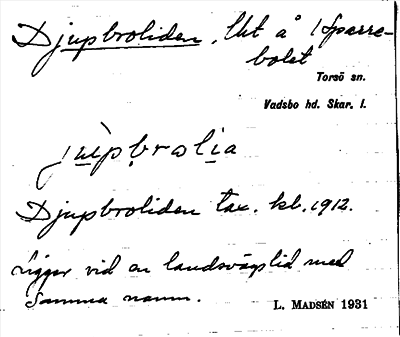 Djupbroliden, lht å Sparre-
bolet
Torsö sn.
Vadsbo hd. Skar. l.
jupbrolia
Djupbroliden tax. kl. 1912.
Ligger vid en landsvägslid med
samma namn.
L. MADSÉN 1931